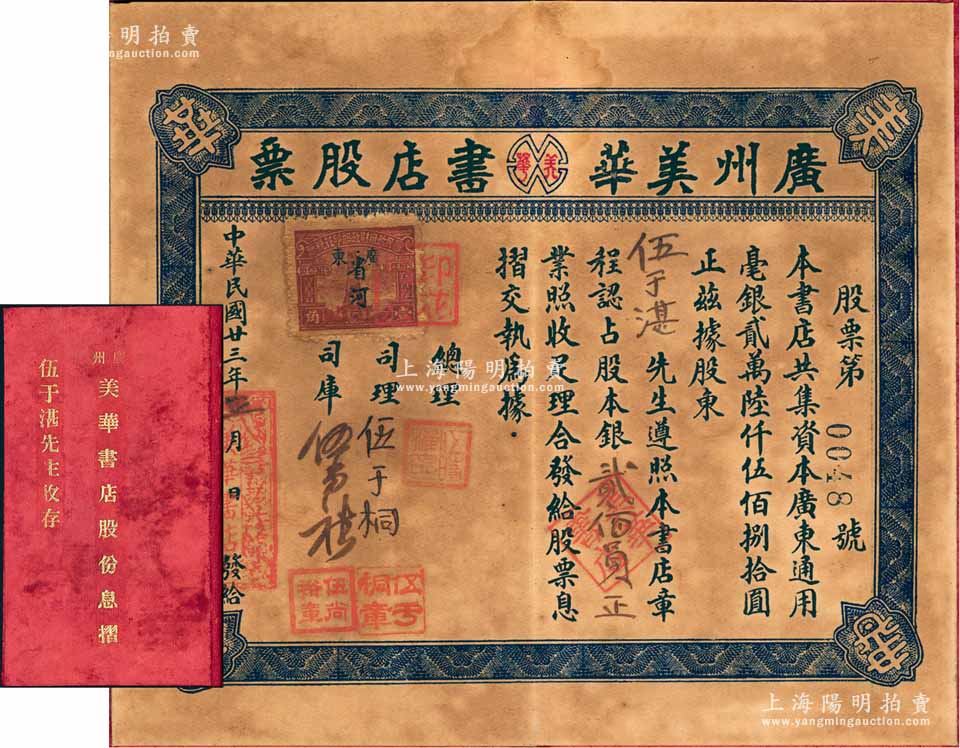 上海陽明拍賣
www.yangmingauction.com
廣州美華
美華
書店股票
股票第0048號
本書店共集資本廣東通用
毫銀貳萬陸仟伍佰捌拾圓
正茲據股東
伍于湛先生遵照本書店章
程認占股本銀貳佰員正
業照收足理合發給股票息
摺交執為據
總理
司理伍于桐
司庫
中華民國廿三年 月 日發給
廣東
省河
角
伍于桐章
伍尚裕章
美
華
廣州
美華書店股份息摺
伍于湛先生收存
上海陽明拍賣
www.yangmingauction.com
上海陽明拍賣
www.yangmingauction.com